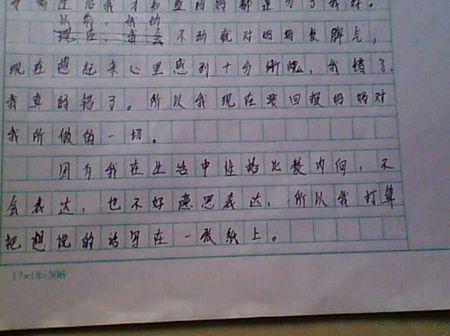 以前，我动
不动就对妈妈发脾气，
现在想起来心里感到十分惭愧，我错了，
我真的错了。所以我现在要回报妈妈对
我所做的一切。
因为我在生活中性格比较内向，不
会表达，也不好意思表达，所以我打算
把想说的话写在一张纸上。
17×18=306